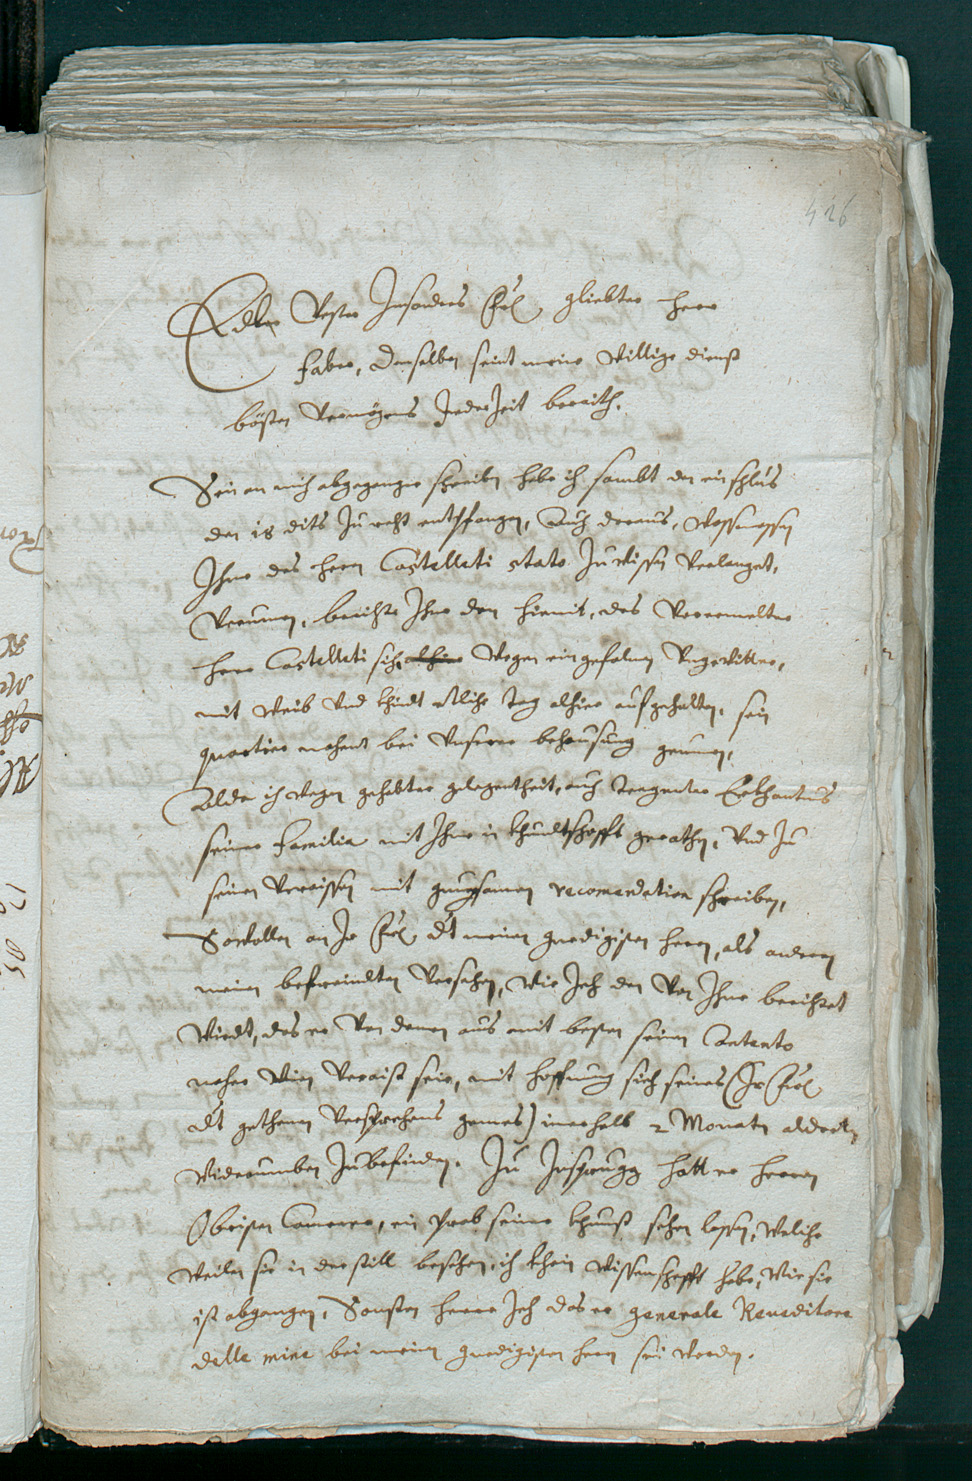 426
Edler Vester Insonders Gros geliebter herr
Faber, demselben seint meine Willige dienst
bösten Vermögens Jeder Zeit beraith.
Sein an mich abgegangne schreiben habe ich sambt den einschlus
den 18 dits Zu recht entpfangen, Auch daraus, Wassmassen
Ihme des herrn Castellati stato Zu wissen Verlanget,
Vernumen, berichte Ihme den hiemit, das Vorermelter
herr Castellati sich alhier Wegen eingefalnen Ungewitter,
mit Weib Und khindt etliche tag alhier aufgehalten, sein
quartier nahent bei Unserer behausung genumen,
Alda ich Wegen gehabter gelegentheit, auch tragenter
seiner Familia mit Ihme in khundtschafft gerathen, Und Zu
seinen Verraissen mit gnugsamen recomandation schreiben,
Sowollen an Ir dt meinen gnedigisten herrn, als andern
meinen befreindten Versehen, Wie Ich den Von Ihme berichtet
Wirdt, das er Von dannen aus mit besten seinen Contento
naher Wien Verraist seie, mit hoffnung sich seines (Ir
dt gethanen Versprechens gemes) innerhalb 2 Monaten aldorten
Widerumben Zubefinden. Zu Insprugg hatt er herrn
Obristen Camerer, ein prob seiner khunst sehen lassen, Weliche
Weilen sie in der still beschehen, ich khein Wissenschafft habe, Wie sie
ist abgangen, Sonsten herre Ich das er generale Reueditore
delle mine bei meinen gnedigisten herrn sei worden.